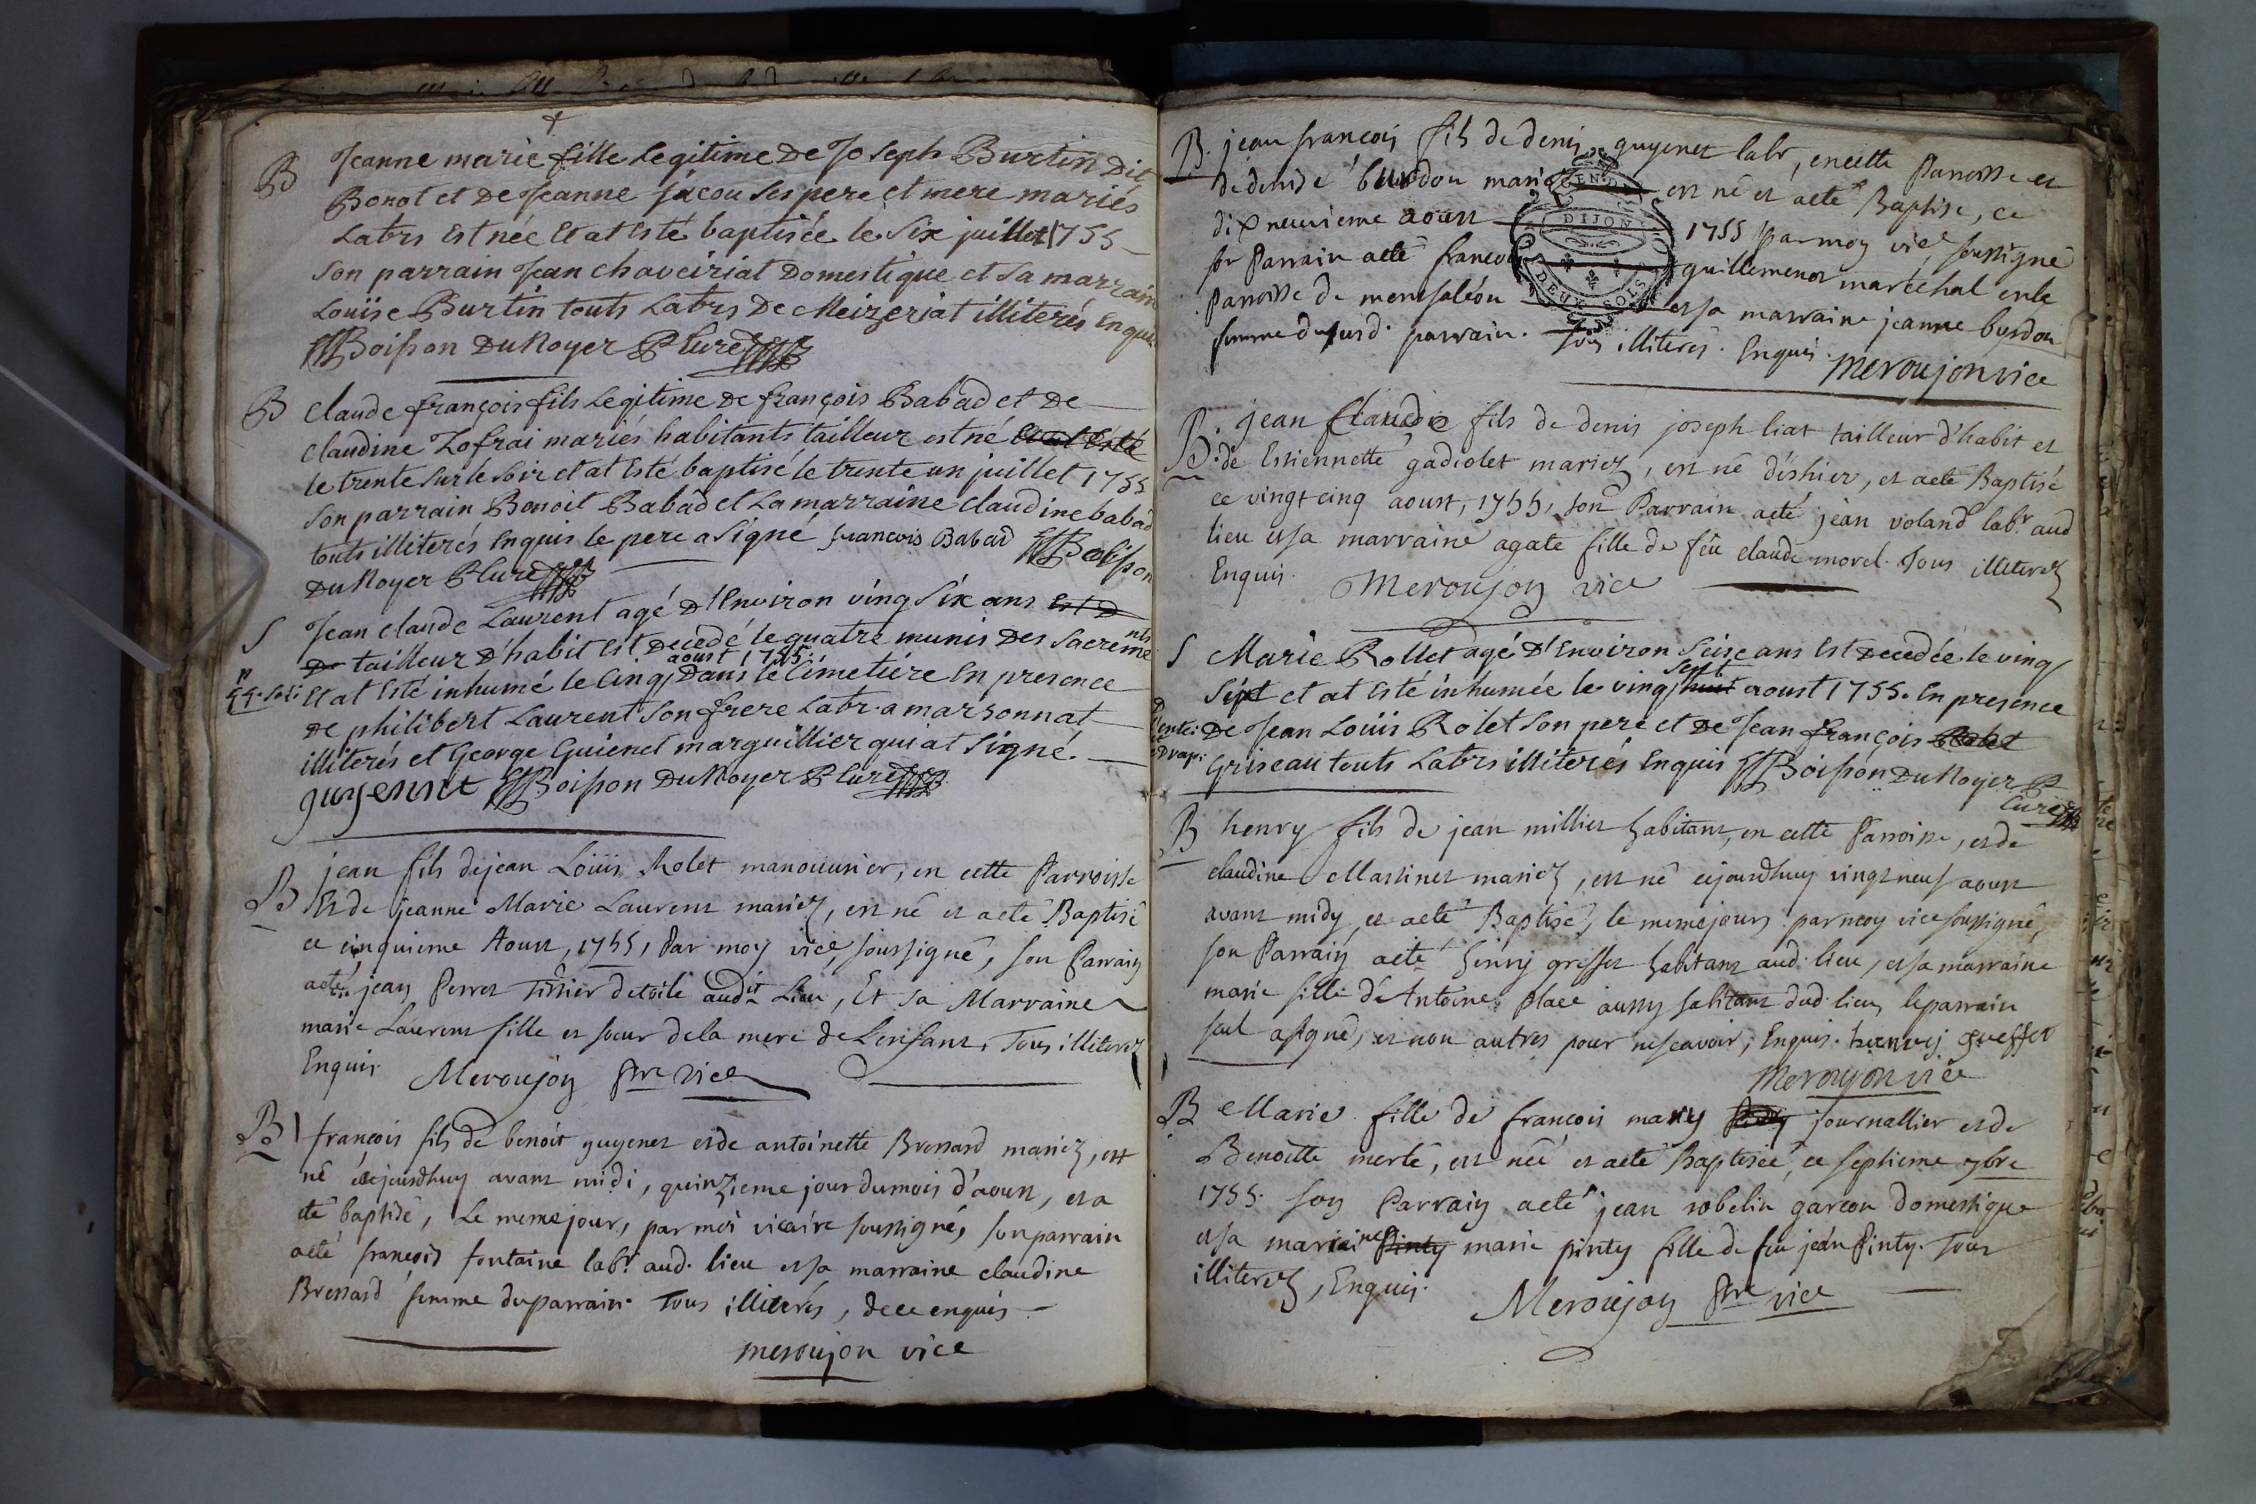 B Jeanne marie fille Legitime De Joseph Burtin Dit
Bonot et De Jeanne Jacou Ses pere et mere mariés
Labrs est née Et at Esté baptisée le Six juillet 1755
Son parrain Jean chaveiriat Domestique et Sa marraine
Louïse Burtin touts Labrs De Meizeriat illiterés Enquis
Boisson DuNoyer P Curé
B Claude françois fils Legitime De françois Babad et De
claudine Zofrai mariés habitants tailleur est né
le trente Sur le Soir et at Esté baptisé le trente un juillet 1755
Son parrain Benoit Babad et La marraine claudine babad
touts illiterés Enquis le pere a Signé francois Babad Boisson
DuNoyer P Curé
S Jean claude Laurent agé D'Environ ving Six ans
tailleur D'habit Est Decedé le quatre munis Des Sacremens
aoust 1755.
Et at Esté inhumé le Cinq Dans le Cimetiére En presence
De philibert Laurent Son frere Labr. a marsonnat
illiterés et George Guienet marguillier qui at Signé.
guyennet Boisson DuNoyer P Curé
B jean fils de jean Loüis Rolet manouurier, en cette Parroisse
Et de jeanne Marie Laurent mariez, est né et aeté Baptisé
ce cinquieme Aoust, 1755, Par moy vice, soussigné, son Parrain
aeté jean Perret Tissier de toile audit Lieu, Et sa Marraine
marie Laurent fille et soeur de la mere de L'enfant, Tous illiterez
Enquis Meroujon ptre vice
B françois fils de benoit guyenet et de antoinette Bressard mariez, est
né cejourdhuy avant midi, quinzieme jour du mois d'aoust, et a
été baptisé, Le meme jour, par moi vicaire soussigné, son parrain
aeté françois fontaine labr. aud. lieu et sa marraine claudine
Bressard femme du parrain. Tous illiterés, de ce enquis
meroujon vice
B. jean francois fils de denis guyenet labr, en cette Paroisse et
de denise burdon mariés est né et aeté Baptisé, ce
dixneuvieme aoust 1755 par moy vice soussigné
son Parrain aeté francois guillemenot maréchal en la
Paroisse de montfaléon et sa marraine jeanne burdon
femme dususd. parrain. Tous illiterés. Enquis. Meroujon vice
GEN DE
DIJON
DEUX SOLS
B. jean Claude fils de denis joseph liat tailleur d'habit et
de Estiennette gadiolet mariez, est né dèshier, et aeté Baptisé
ce vingt cinq aoust, 1755, son Parrain aeté jean voland labr. aud
lieu et sa marraine agate fille de feu claude morel. Tous illiterez
Enquis. Meroujon vice
S Marie Rollet agé D'Environ Seise ans Est Decedée le ving
Sept
Sept et at Esté inhumée le ving huit aoust 1755. En presence
De Jean Loüis Rolet Son pere et De Jean françois Rolet
Griseau touts Labrs illiterés Enquis Boisson DuNoyer P
Curé
B henry fils de jean millies habitant, en cette Parroisse, et de
claudine Martinet mariez, est né cejourdhuy vingt neuf aoust
avant midy, et aeté Baptisé, le meme jour, par moy vice soussigné,
son Parrain aeté henry gresset habitant aud. lieu, et sa marraine
marie fille d'Antoine place aussy habitant dud. lieu, le parrain
seul asigné, et non autres pour ne scavoir, Enquis. henrij
Meroujon vice
B Marie fille de francois mary journallier et de
Benoitte merle, est née et aeté Baptisée, ce septieme 7bre
1755. Son Parrain aeté jean robelin garcon domestique
et sa marraine Pinty marie pinty fille de feu jean Pinty. Tous
illiterez, Enquis.
Meroujon ptre vice